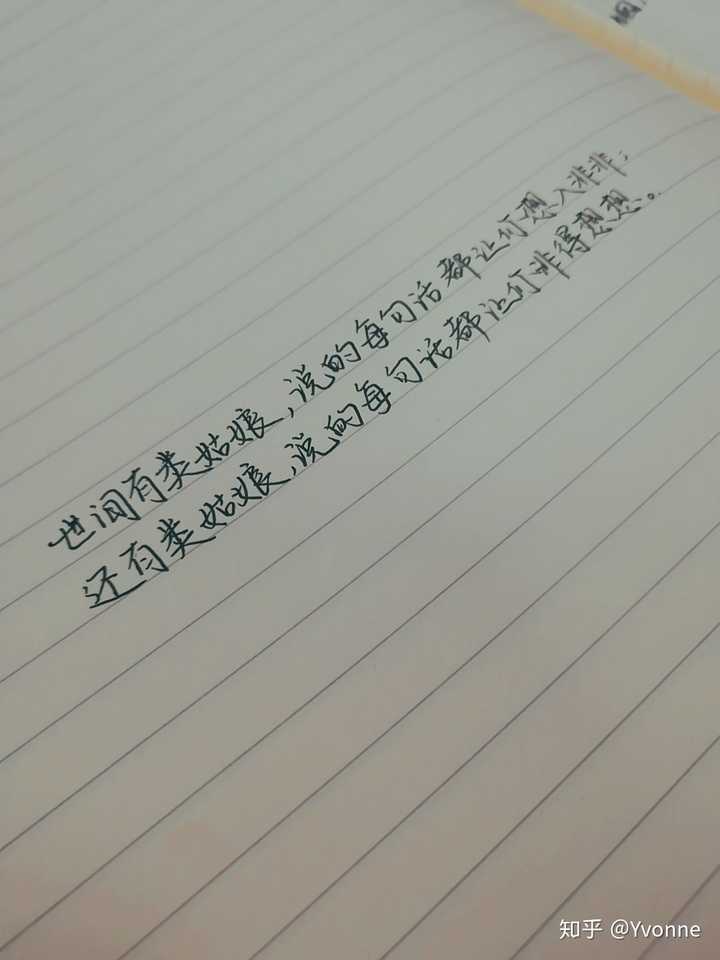 世间有类姑娘,说的每句话都让你想入非非;
还有类姑娘,说的每句话都让你非得想想。
知乎 @Yvonne